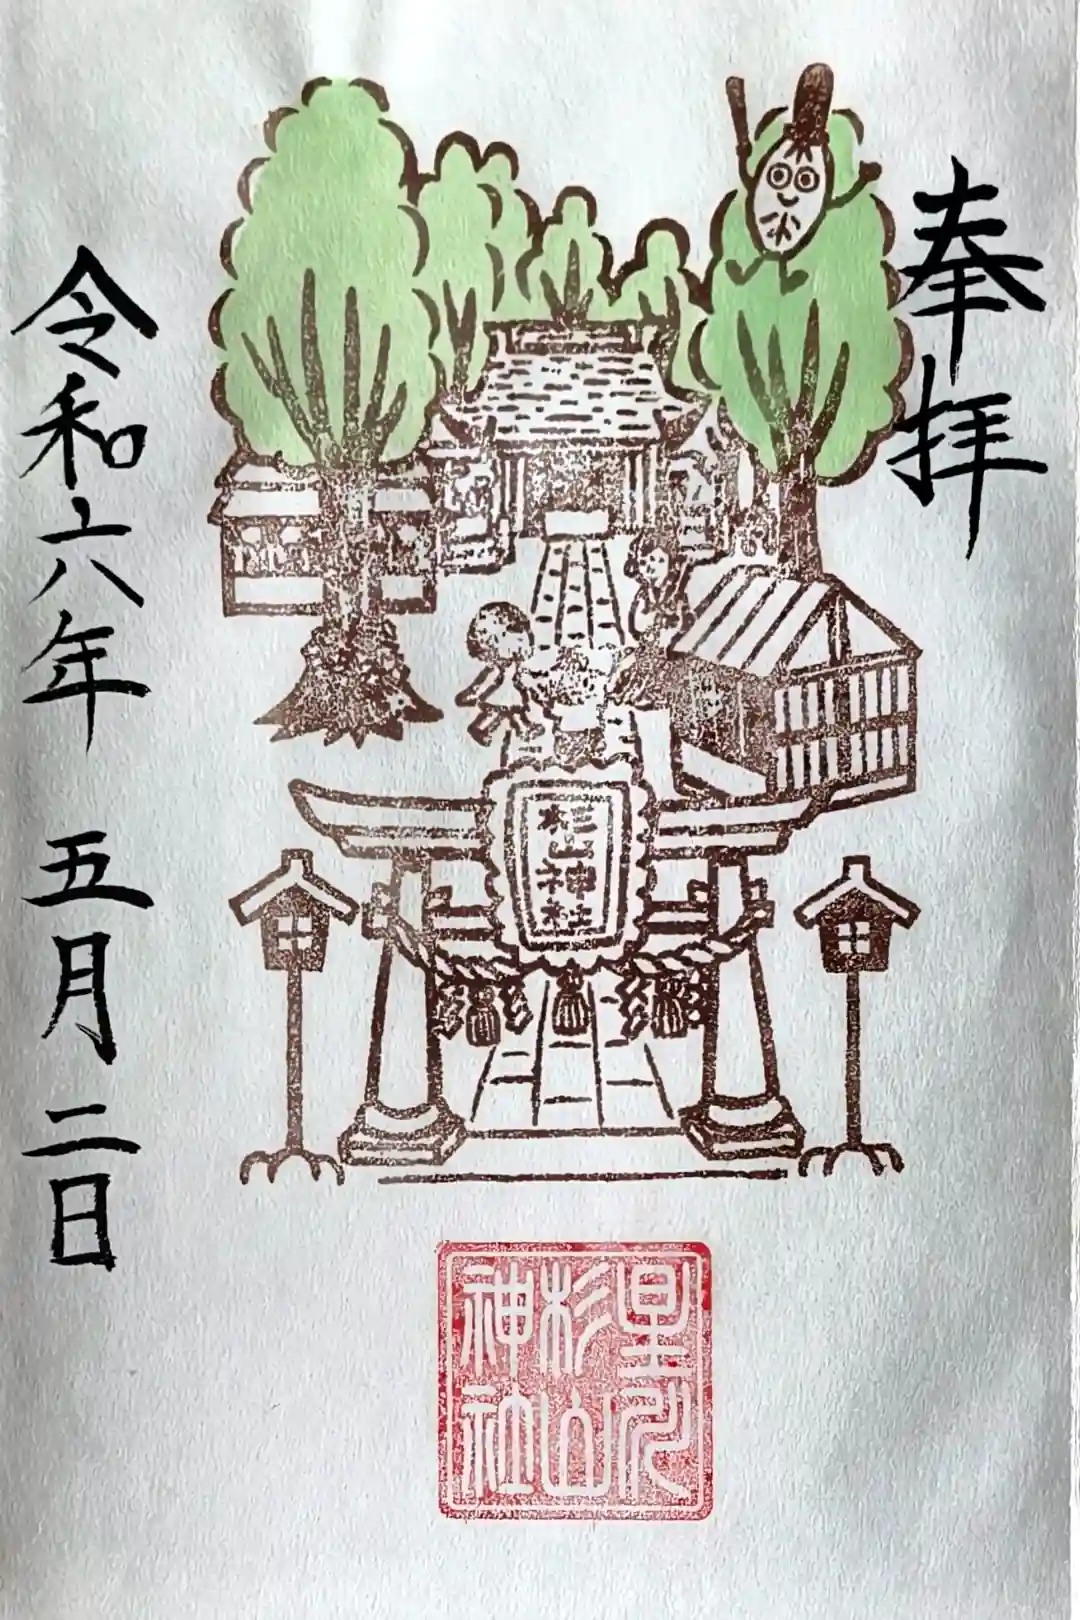 奉拝
杉山神社
星川
杉山
神社
令和六年 五月二日